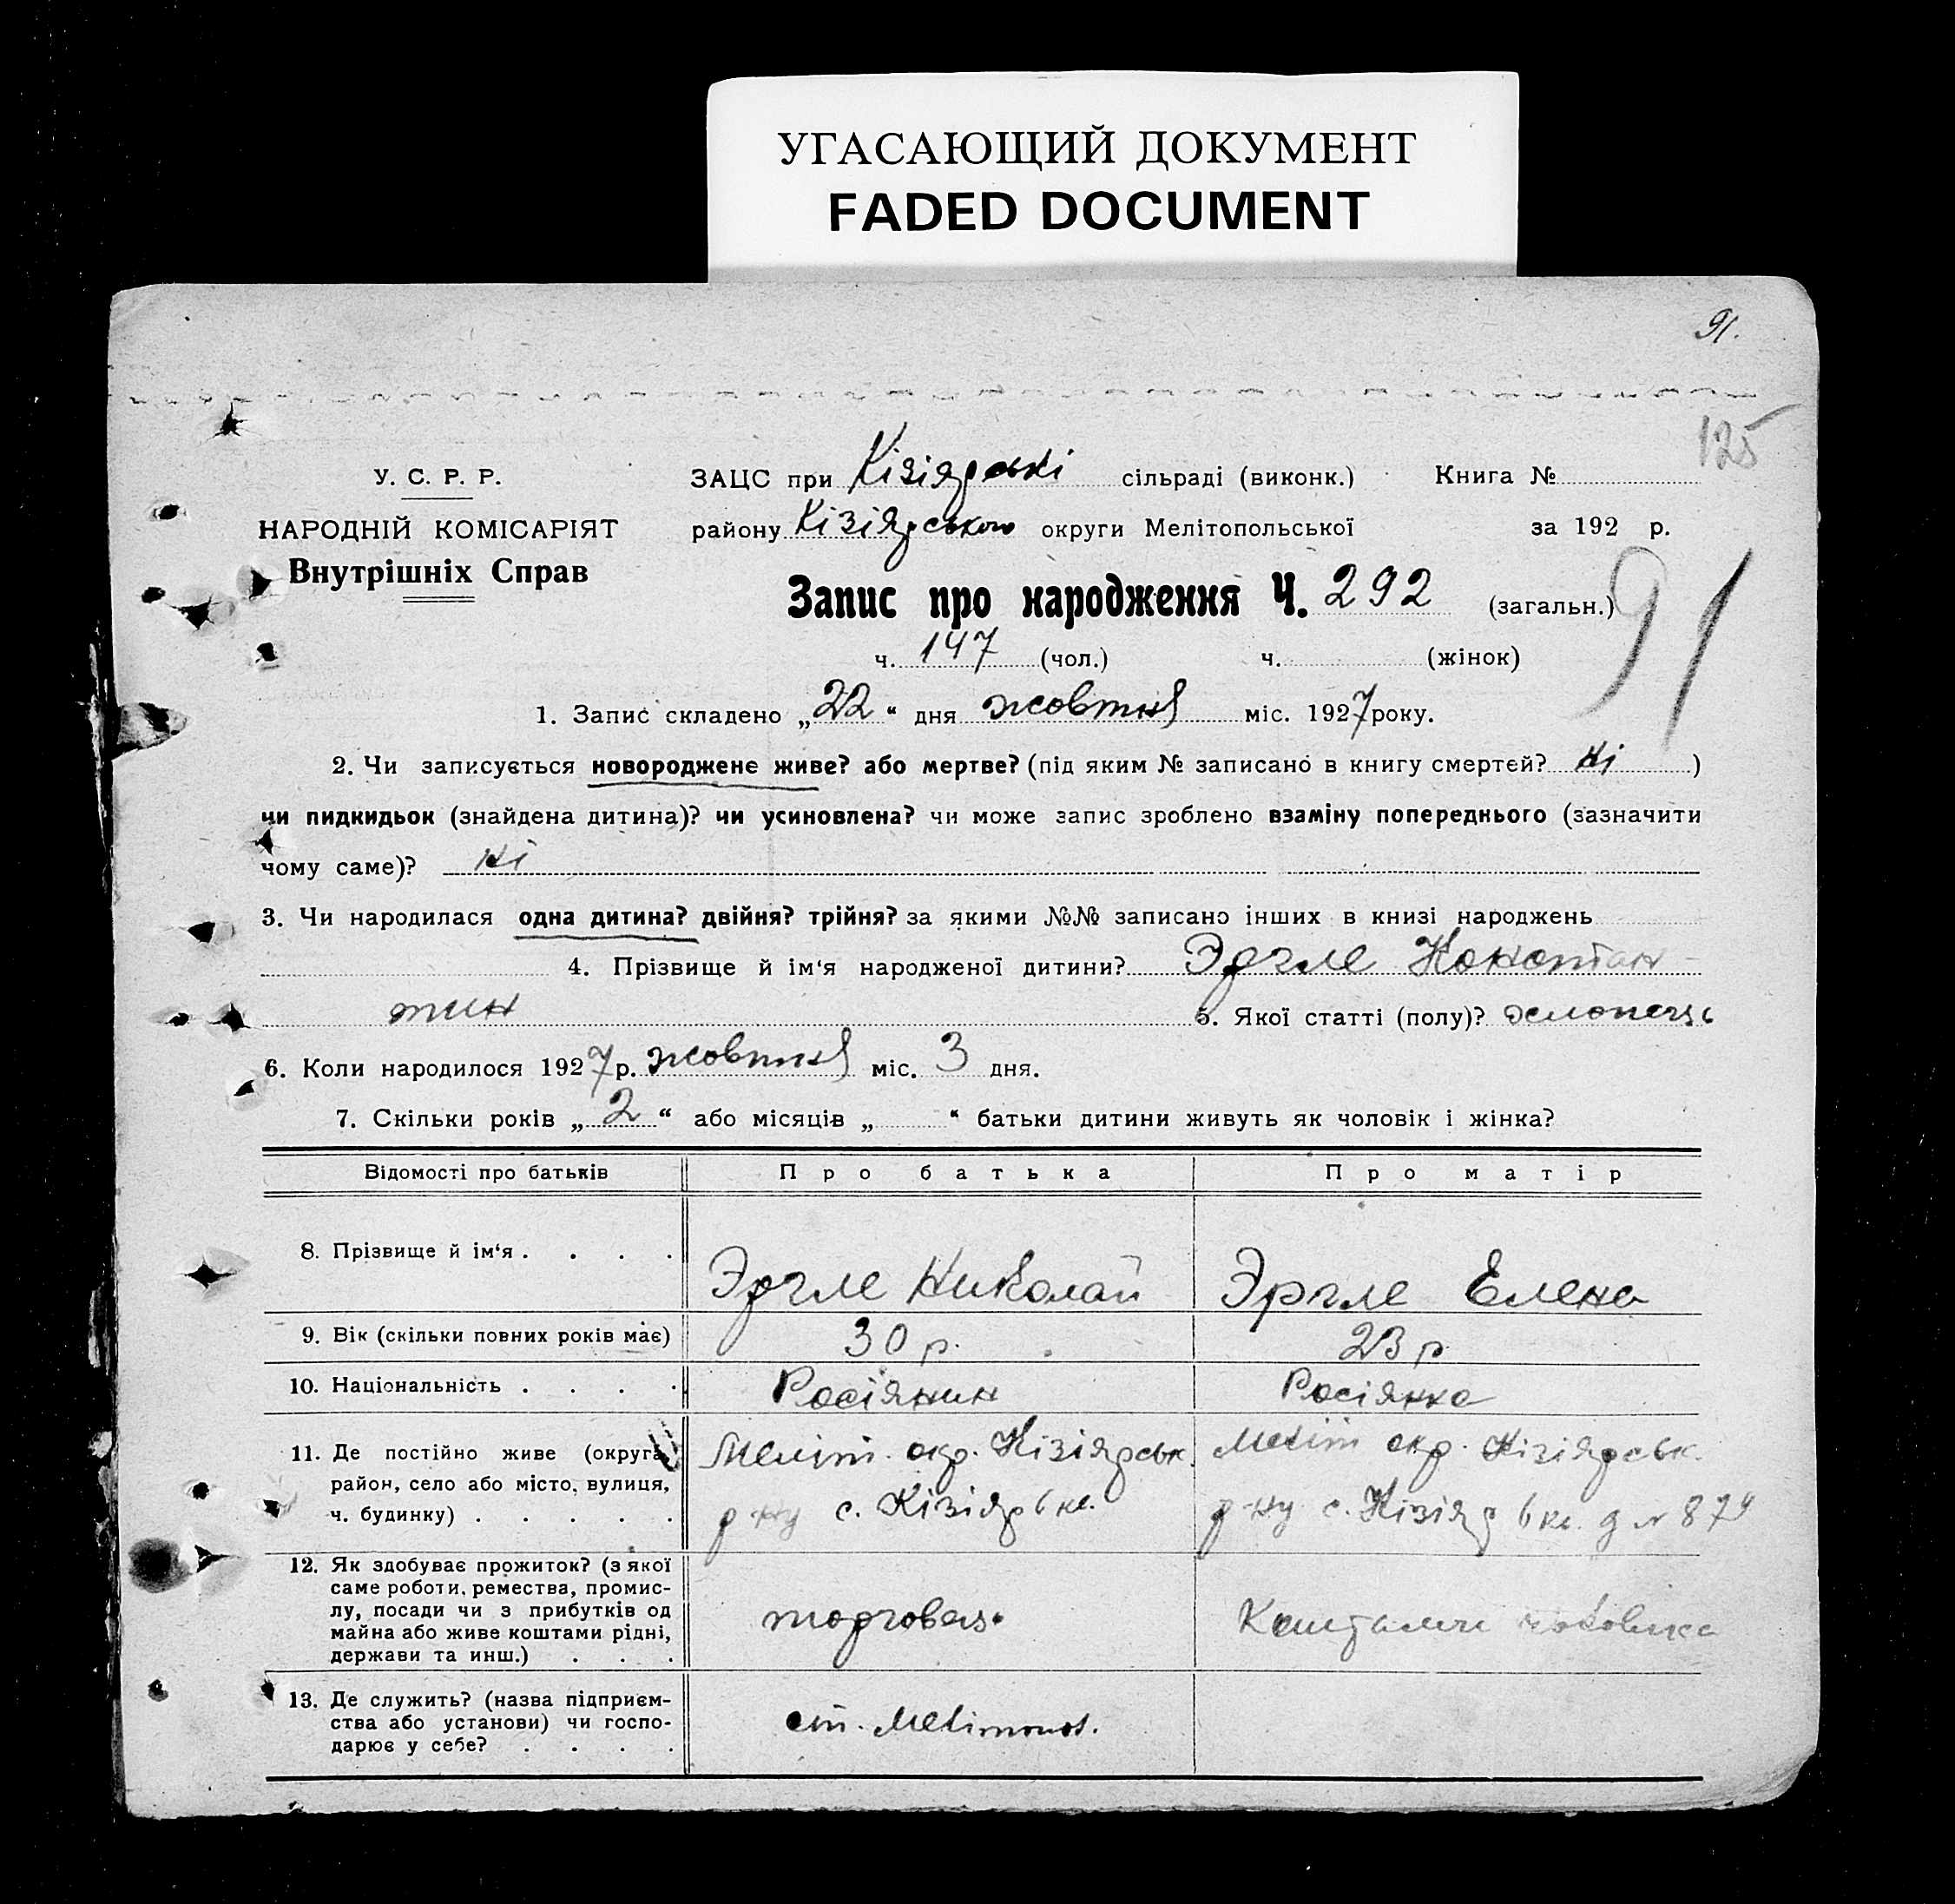 УГАСАЮЩИЙ ДОКУМЕНТ
FADED DOCUMENT
91.
125
У. С. Р. Р.
НАРОДНІЙ КОМІСАРІЯТ
Внутрішніх Справ
ЗАЦС при Кізіярські сільраді (виконк.) Книга №
району Кізіярського округи Мелітопольської за 192 р.
Запис про народження Ч. 292 (загальн.)
91
ч. 147 (чол.) ч. (жінок)
1. Запис складено „22“ дня жовтня міс. 1927 року.
2. Чи записується новороджене живе? або мертве? (під яким № записано в книгу смертей? Ні )
чи пидкидьок (знайдена дитина)? чи усиновлена? чи може запис зроблено взаміну попереднього (зазначити
чому саме)? Ні
3. Чи народилася одна дитина? двійня? трійня? за якими №№ записано інших в книзі народжень
4. Прізвище й ім‘я народженої дитини? Эргле Констан-
тин 5. Якої статті (полу)?
6. Коли народилося 1927 р. жовтня міс. 3 дня.
7. Скільки років „2“ або місяців „ “ батьки дитини живуть як чоловік і жінка?
Відомості про батьків Про батька Про матір
8. Прізвище й ім‘я . . . . Эргле Николай Эргле Елена
9. Вік (скільки повних років має) 30 р. 23 р
10. Національність . . . . Росіянин Росіянка
11. Де постійно живе (округа, Меліт. окр. Кізіярськ. Меліт окр. Кізіярськ.
район, село або місто, вулиця, р-ну с. Кізіяр 6 кв. р-ну с. Кізіяр 6 кв. д № 874
ч. будинку) . . . . .
12. Як здобуває прожиток? (з якої
саме роботи, ремества, промис-
лу, посади чи з прибутків од торговець
майна або живе коштами рідні,
держави та инш.) . . .
13. Де служить? (назва підприєм-
ства або установи) чи госпо- ст. Мелітопол.
дарює у себе? . . . .